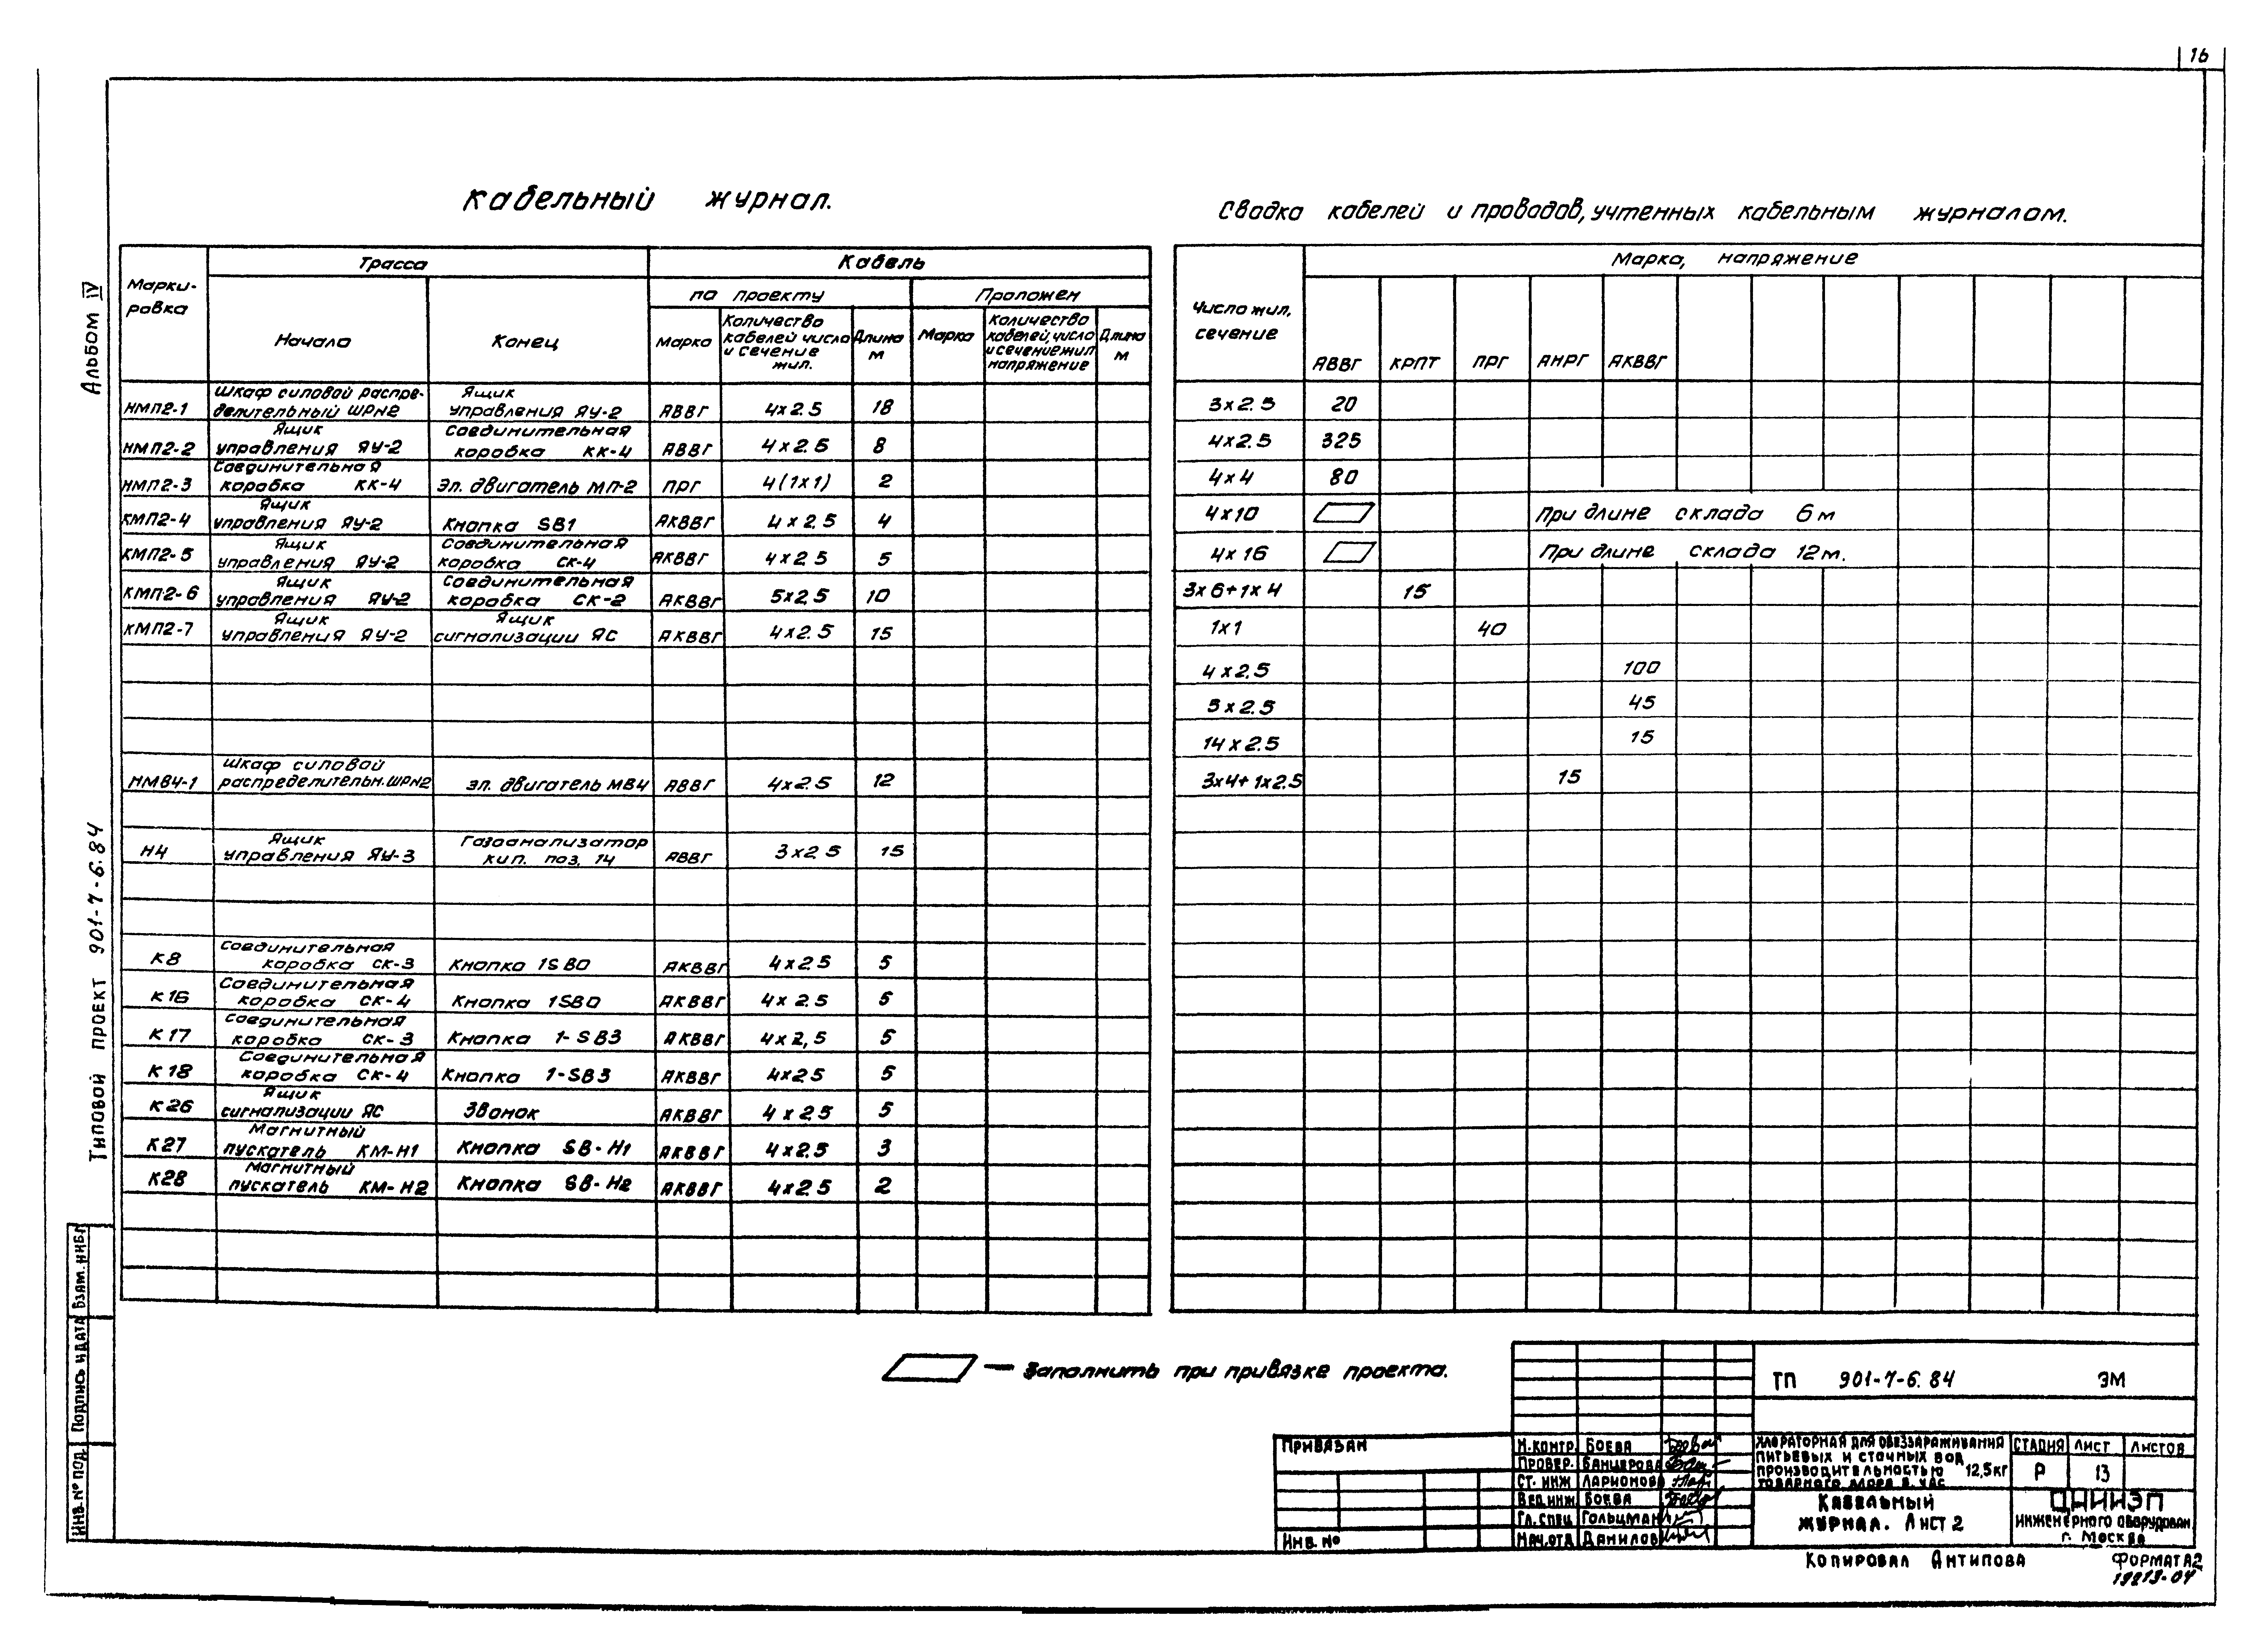 16
Кабельный журнал.
Сводка кабелей и проводов, учтенных кабельным журналом.
Альбом IV
Типовой проект 901-7-6.84
Марки-
ровка
Трасса
Кабель
Начало
Конец
по проекту
Проложен
Марка
Количество
кабелей число
и сечение
жил.
Длина
м
Марка
Количество
кабелей, число
и сечение жил
напряжение
Длина
м
НМП2-1 Шкаф силовой распре-
делительный ШРН2 Ящик
управления ЯУ-2 АВВГ 4х2.5 18
НМП2-2 Ящик
управления ЯУ-2 Соединительная
коробка КК-4 АВВГ 4х2.5 8
НМП2-3 Соединительная
коробка КК-4 эл. двигатель МП-2 ПРГ 4(1х1) 2
КМП2-4 Ящик
управления ЯУ-2 Кнопка SB1 АКВВГ 4х2,5 4
КМП2-5 Ящик
управления ЯУ-2 Соединительная
коробка СК-4 АКВВГ 4х2.5 5
КМП2-6 Ящик
управления ЯУ-2 Соединительная
коробка СК-2 АКВВГ 5х2,5 10
КМП2-7 Ящик
управления ЯУ-2 Ящик
сигнализации ЯС АКВВГ 4х2.5 15
НМВ4-1 Шкаф силовой
распределительн. ШРН2 эл. двигатель МВ4 АВВГ 4х2.5 12
Н4 Ящик
управления ЯУ-3 Газоанализатор
кип. поз. 14 АВВГ 3х2.5 15
К8 Соединительная
коробка СК-3 Кнопка 1SB0 АКВВГ 4х2.5 5
К16 Соединительная
коробка СК-4 Кнопка 1SB0 АКВВГ 4х2.5 5
К17 Соединительная
коробка СК-3 Кнопка 1-SB3 АКВВГ 4х2,5 5
К18 Соединительная
коробка СК-4 Кнопка 1-SB3 АКВВГ 4х2.5 5
К26 Ящик
сигнализации ЯС Звонок АКВВГ 4х2.5 5
К27 Магнитный
пускатель КМ-Н1 Кнопка SB-Н1 АКВВГ 4х2.5 3
К28 Магнитный
пускатель КМ-Н2 Кнопка SB-Н2 АКВВГ 4х2.5 2
Число жил,
сечение
Марка, напряжение
АВВГ КРПТ ПРГ АНРГ АКВВГ
3х2.5 20
4х2.5 325
4х4 80
4х10 При длине склада 6м
4х16 При длине склада 12м.
3х6+1х4 15
1х1 40
4х2.5 100
5х2.5 45
14х2.5 15
3х4+1х2.5 15
— Заполнить при привязке проекта.
ТП 901-7-6.84 ЭМ
Привязан
Инв. №
Н.контр. Боева
Провер. Банцерова
Ст. инж Ларионова
Вед.инж. Боева
Гл. спец Гольцман
Нач.отд Данилов
Хлораторная для обеззараживания
питьевых и сточных вод
производительностью 12,5кг
товарного хлора в час
Стадия Лист Листов
Р 13
Кабельный
журнал. Лист 2
ЦНИИЭП
инженерного оборудован
г. Москва
Копировал Антипова
Формат А2
19213-04
Инв. № под. Подпись и дата Взам. инв.